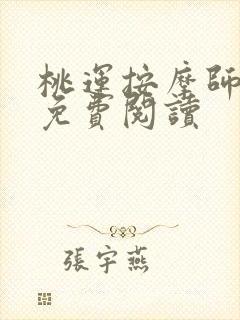 桃運按摩師
免費閱讀
張宇燕